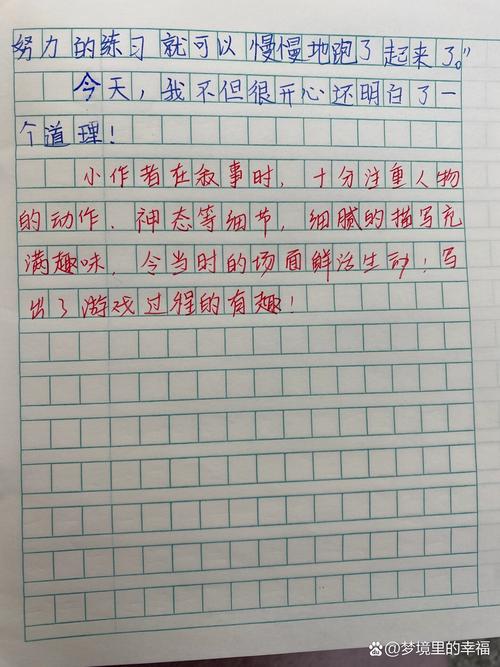 努力的练习就可以慢慢地跑了起来了。”
今天，我不但很开心还明白了一
个道理！
小作者在叙事时，十分注重人物
的动作、神态等细节，细腻的描写充
满趣味，令当时的场面鲜活生动！写
出了游戏过程的有趣！
@梦境里的幸福